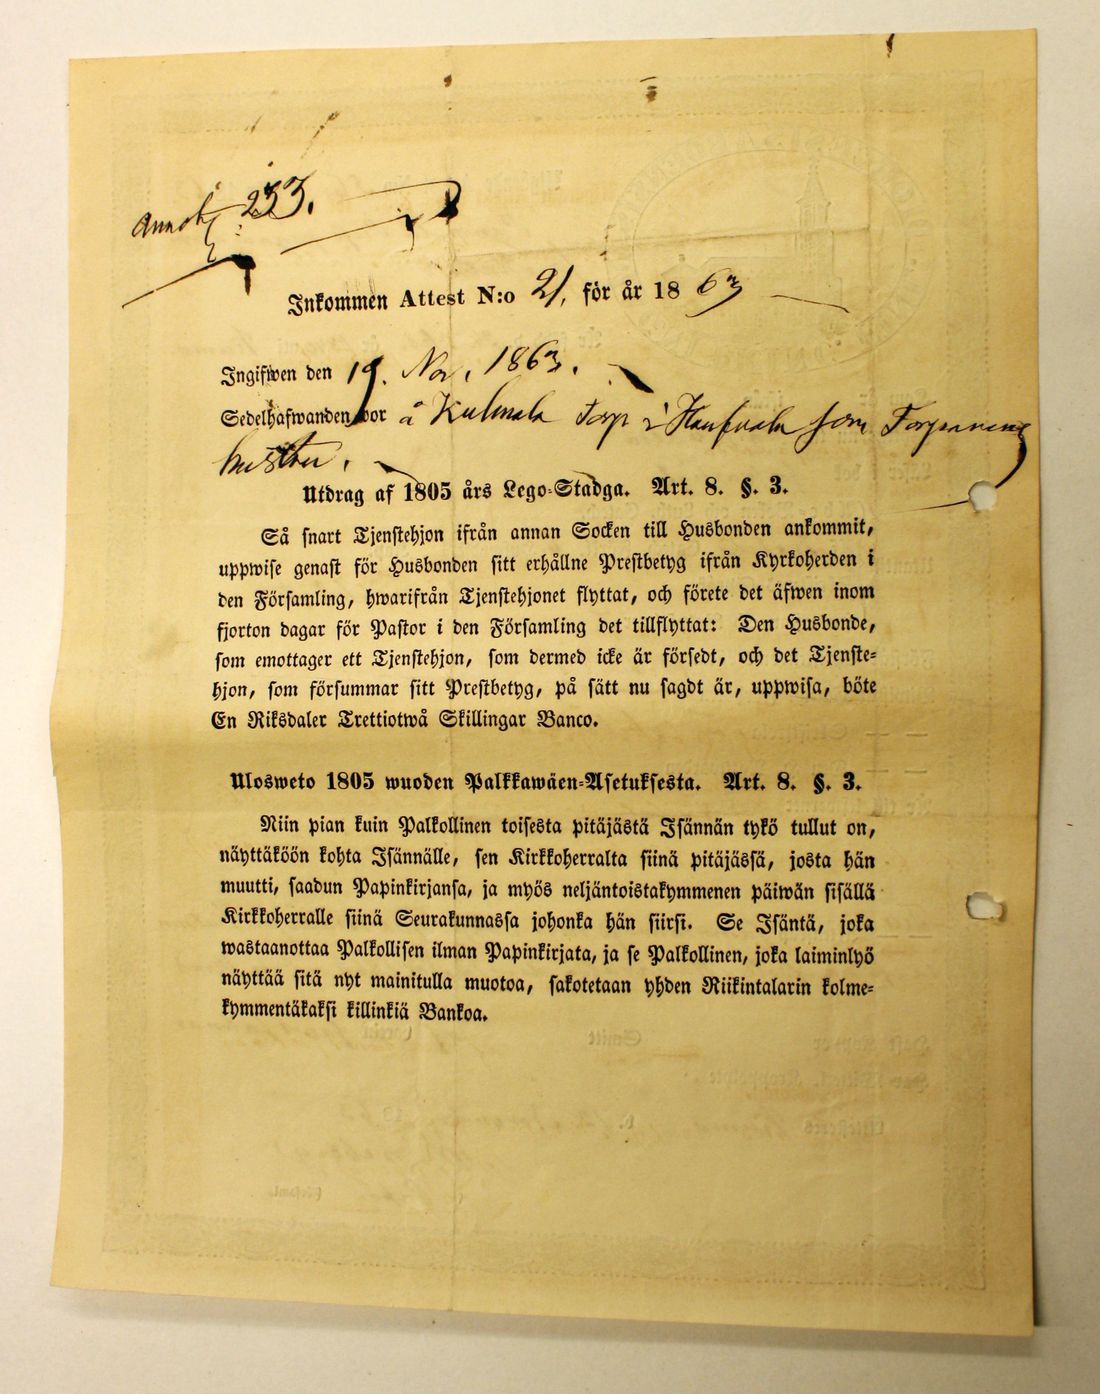 233.
Inkommen Attest N:o 21, för år 1863
Ingifwen den 19. Nov. 1863.
Sedelhafwanden bor å Kulmala Torp i som
hustru.
Utdrag af 1805 års Lego-Stadga. Art. 8. §. 3.
Så snart Tjenstehjon ifrån annan Socken till Husbonden ankommit,
uppwise genast för Husbonden sitt erhållne Prestbetyg ifrån Kyrkoherden i
den Församling, hwarifrån Tjenstehjonet flyttat, och förete det äfwen inom
fjorton dagar för Pastor i den Församling det tillflyttat: Den Husbonde,
som emottager ett Tjenstehjon, som dermed icke är försedt, och det Tjenste-
hjon, som försummar sitt Prestbetyg, på sätt nu sagdt är, uppwisa, böte
En Riksdaler Trettiotwå Skillingar Banco.
Ulosweto 1805 wuoden Palkkawäen-Asetuksesta. Art. 8. §. 3.
Niin pian kuin Palkollinen toisesta pitäjästä Isännän tykö tullut on,
näyttäköön kohta Isännälle, sen Kirkkoherralta siinä pitäjässä, josta hän
muutti, saadun Papinkirjansa, ja myös neljäntoistakymmenen päiwän sisällä
Kirkkoherralle siinä Seurakunnassa johonka hän siirsi. Se Isäntä, joka
wastaanottaa Palkollisen ilman Papinkirjata, ja se Palkollinen, joka laiminlyö
näyttää sitä nyt mainitulla muotoa, sakotetaan yhden Riikintalarin kolme-
kymmentäkaksi killinkiä Bankoa.